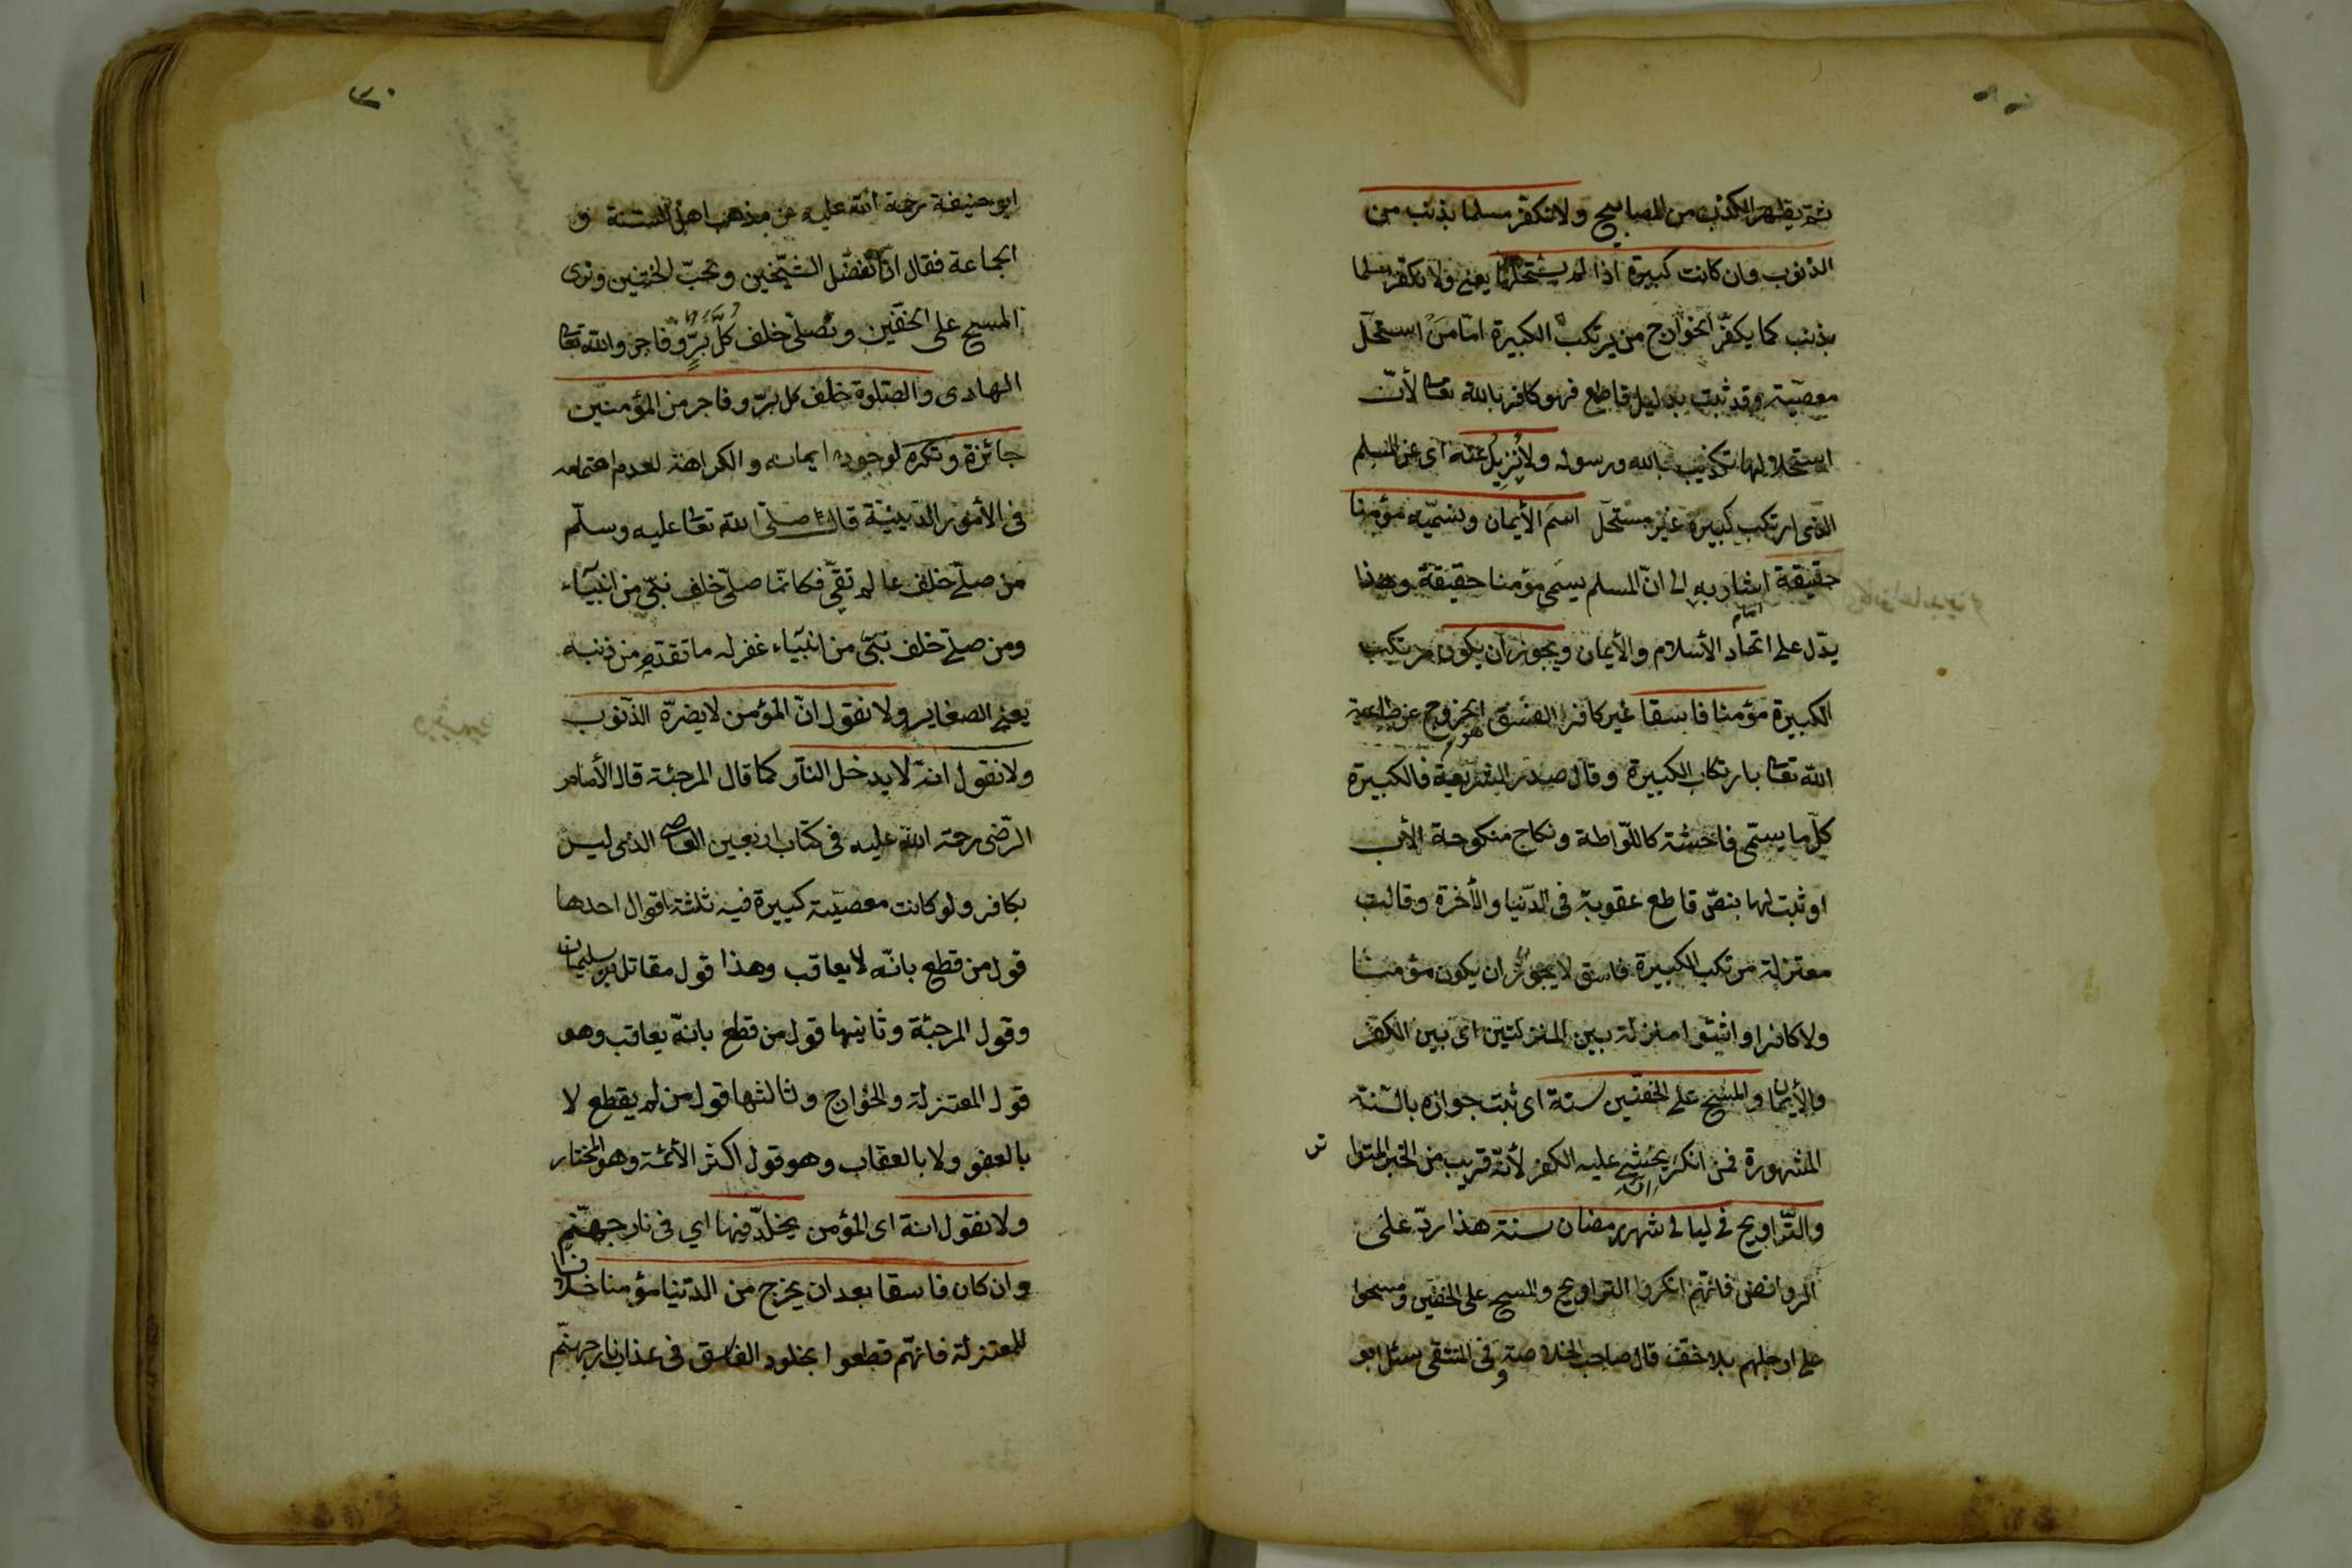 ثم يظهر الكذب من المصابيح ولا نكفر مسلما بذنب من
الذنوب وان كانت كبيرة اذا لم يستحلها يعنى ولا نكفر مسلما
بذنب كما يكفّر الخوارج من يرتكب الكبيرة امّا من استحلّ
معصية وقد ثبت بدليل قاطع فهو كافر بالله تعا لأنّ
استحلالها تكذيب بالله ورسوله ولا نزيل عنه اى عن المسلم
الذى ارتكب كبيرة غير مستحلّ اسم الأيمان ونسمّيه مؤمنا
حقيقة اشار به الى انّ المسلم يسمى مؤمنا حقيقة وهذا
يدّل على اتحاد الأسلام والأيمان ويجوز ان يكون مرتكب
الكبيرة مؤمنا فاسقا غير كافر الفسق هو الخروج عن طاعة
الله تعا بارتكاب الكبيرة وقال صدر الشريعة فالكبيرة
كلّ ما يسمّى فاحشة كاللّواطة ونكاح منكوحة الأب
او ثبت لها بنصّ قاطع عقوبة فى الدّنيا والأخرة وقالت
معتزلة مرتكب الكبيرة فاسق لا يجوز ان يكون مؤمنا
ولا كافرا واثبتوا منزلة بين المنزلتين اى بين الكفر
والأيمان والمسح على الخفّين سنة اى ثبت جوازه بالسّنّة
المشهورة فمن انكر يخشى عليه الكفر لأنّه قريب من الخبر المتوا
تر
والتّراويح فى ليالى شهر رمضان سنة هذا ردّ على
الروافض فانّهم انكروا التراويح والمسح على الخفين ومسحوا
على ارجلهم بلا خفّ قال صاحب الخلاصة وفى المنتقى سئل ابو
٣٠
ابو حنيفة رحمة الله عليه عن مذهب اهل السنة و
الجماعة فقال ان نفضّل الشيّخين ونحبّ الختنين ونرى
المسح على الخفّين ونصلّى خلف كلّ برّ وفاجر والله تعا
الهادى والصّلوة خلف كل برّ وفاجر من المؤمنين
جائزة وتكره لوجود ايمانه والكراهة لعدم اهتمامه
فى الأمور الدّينيّة قال صلّى الله تعا عليه وسلّم
من صلّى خلف عالم تقىّ فكانمّا صلّى خلف نبّى من انبيآء
ومن صلّى خلف نبىّ من انبيآء غفر له ما تقدّم من ذنبه
يعنى الصغاير ولا نقول انّ المؤمن لا يضرّه الذّنوب
ولا نقول انهّ لا يدخل النّار كما قال المرجئة قال الأمام
الرّضى رحمة الله عليه فى كتاب اربعين العاصى الذى ليس
بكافر ولو كانت معصيّة كبيرة فيه ثلثة اقوال احدها
قول من قطع بانّه لا يعاقب وهذا قول مقاتل بن سليمان
وقول المرجئة وثانيها قول من قطع بانهّ يعاقب وهو
قول المعتزلة والخوارج وثالثها قول من لم يقطع لا
بالعفو ولا بالعقاب وهو قول اكثر الأئمة وهو المختار
ولا نقول انه اى المؤمن يخلدّ فيها اي فى نار جهنّم
وان كان فاسقا بعد ان يخرج من الدّنيا مؤمنا خلافا
للمعتزلة فانهّم قطعوا بخلود الفاسق فى عذاب نار جهنّم